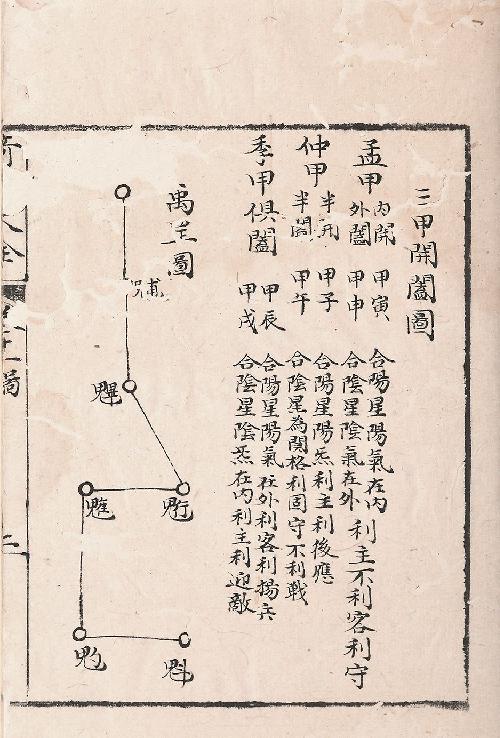 三甲開闔圖
孟甲 內開 甲寅 合陽星陽氣在內
外闔 甲申 合陰星陰氣在外
利主不利客利守
仲甲 半開 甲子 合陽星陽炁利主利後應
半闔 甲午 合陰星為関格利固守不利戰
季甲俱闔 甲辰 合陽星陽氣在外利客利揚兵
甲戌 合陰星陰炁在內利主利迎敵
禹 圖
魓
魁
大全
圖